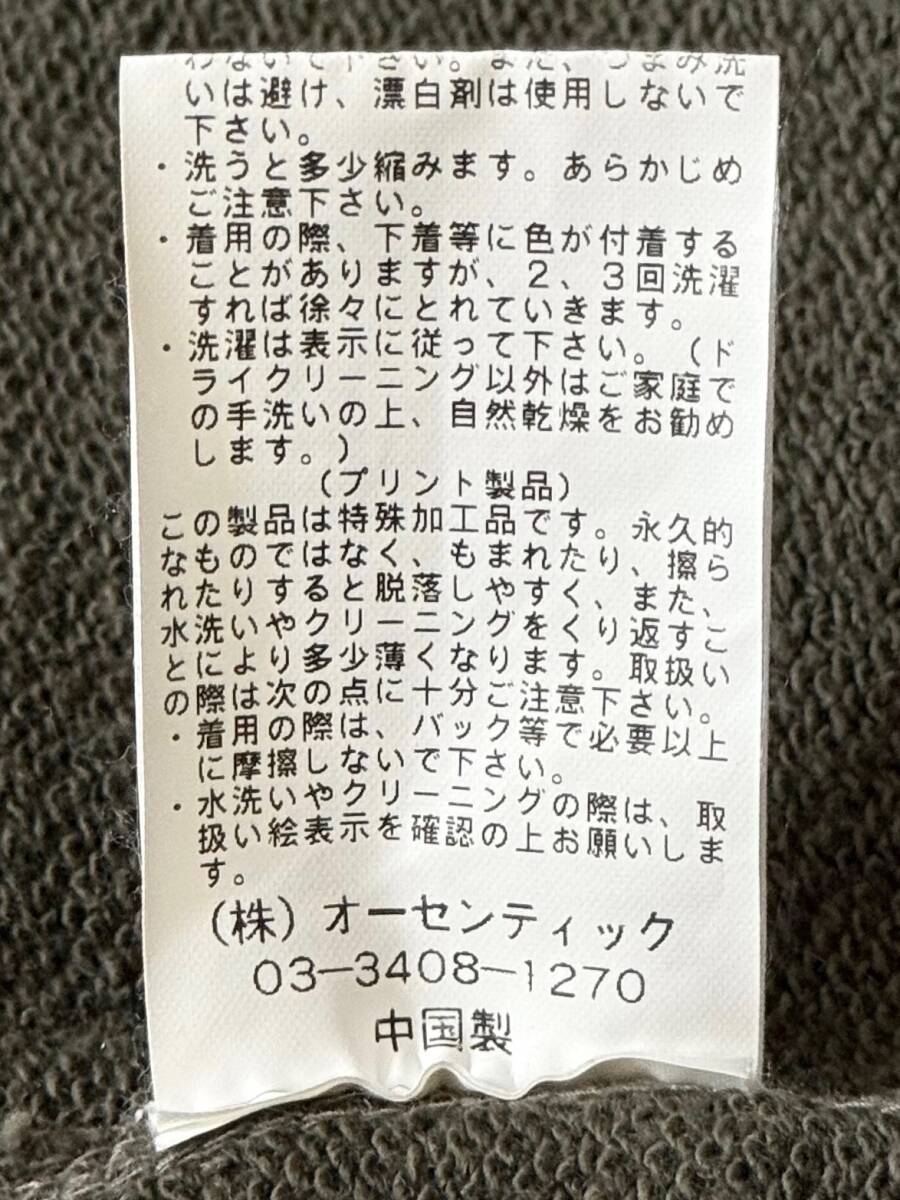 わないで下さい。また、つまみ洗
いは避け、漂白剤は使用しないで
下さい。
・洗うと多少縮みます。あらかじめ
ご注意下さい。
・着用の際、下着等に色が付着する
ことがありますが、2、3回洗濯
すれば徐々にとれていきます。
・洗濯は表示に従って下さい。(ド
ライクリーニング以外はご家庭で
の手洗いの上、自然乾燥をお勧め
します。)
(プリント製品)
この製品は特殊加工品です。永久的
なものではなく、もまれたり、擦ら
れたりすると脱落しやすく、また、
水洗いやクリーニングをくり返すこ
とにより多少薄くなります。取扱い
の際は次の点に十分ご注意下さい。
・着用の際は、バック等で必要以上
に摩擦しないで下さい。
・水洗いやクリーニングの際は、取
扱い絵表示を確認の上お願いしま
す。
(株)オーセンティック
03-3408-1270
中国製